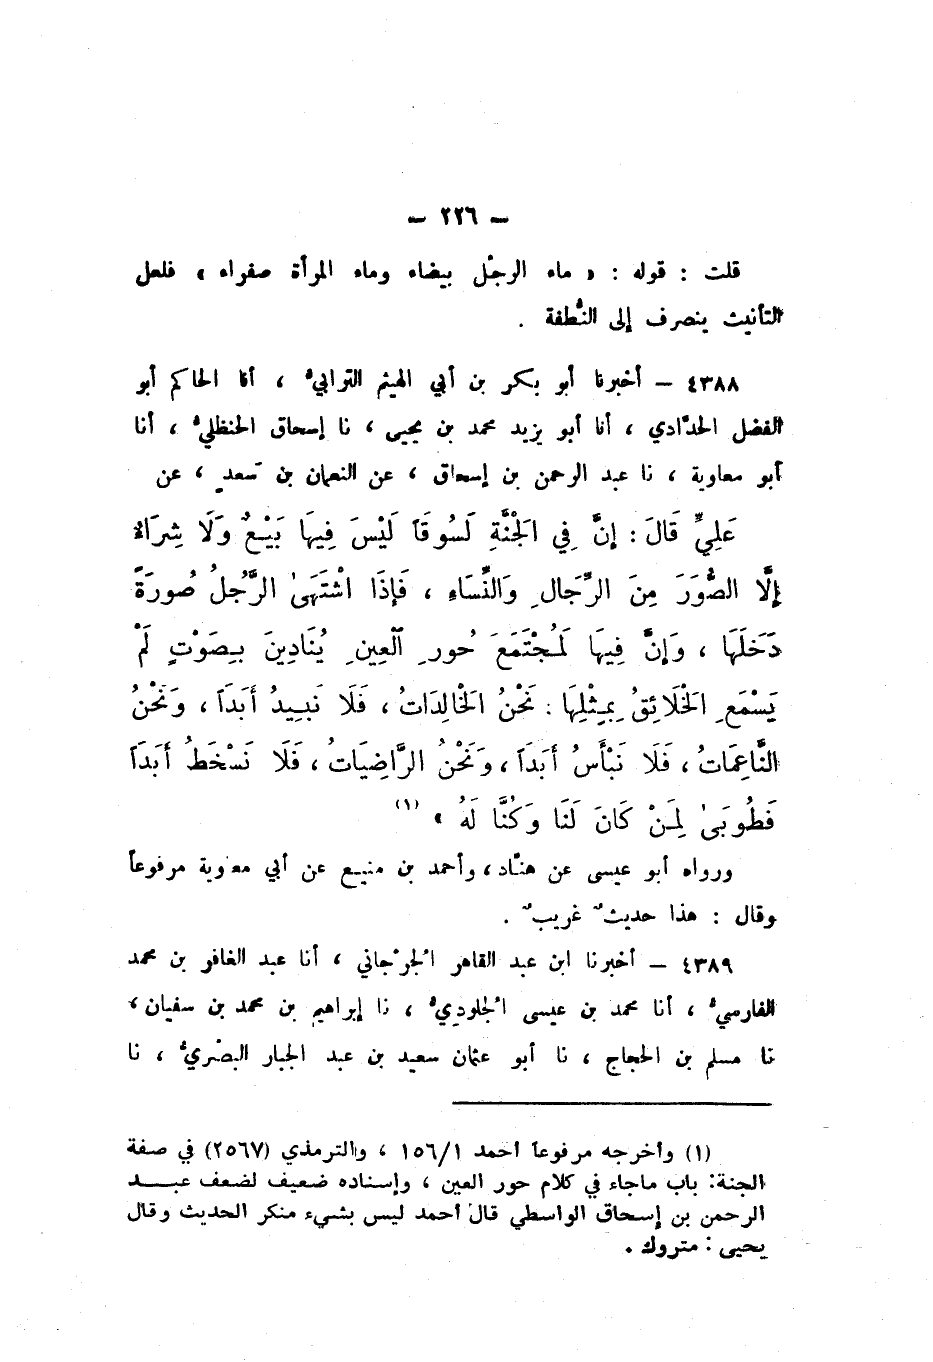 — ٢٢٦ —
قلت : قوله : « ماء الرجُل بيضاء وماء المرأة صفراء » فلعل
التأنيث ينصرف إلى النُّطفة .
٤٣٨٨ — أخبرنا أبو بكر بن أبي الهيثم الترابيُّ ، أنا الحاكم أبو
الفضل الحدّادي ، أنا أبو يزيد محمد بن يحيى ، نا إسحاق الحنظليُّ ، أنا
أبو معاوية ، نا عبد الرحمن بن إسحاق ، عن النعمان بن سَعدٍ ، عن
عَلِيٍّ قَالَ : إنَّ فِي الْجَنَّةِ لَسُوقَاً لَيْسَ فِيهَا بَيْعٌ وَلَا شِرَاءٌ
إِلَّا الصُّوَرَ مِنَ الرِّجَالِ وَالنِّسَاءِ ، فَإذَا اشْتَهَىٰ الرَّجُلُ صُورَةً
دَخَلَهَا ، وَإنَّ فِيهَا لَمُجْتَمَعَ حُورِ الْعِينِ يُنَادِينَ بِصَوْتٍ لَمْ
يَسْمَعِ الْخَلَائِقُ بِمِثْلِهَا : نَحْنُ الْخَالِدَاتُ ، فَلَا نَبِيدُ أَبَدَاً ، وَنَحْنُ
النَّاعِمَاتُ ، فَلَا نَبْأَسُ أَبَدَاً ، وَنَحْنُ الرَّاضِيَاتُ ، فَلَا نَسْخَطُ أَبَدَاً
فَطُوبَىٰ لِمَنْ كَانَ لَنَا وَكُنَّا لَهُ » (١)
ورواه أبو عيسى عن هنّاد ، وأحمد بن منيع عن أبي معاوية مرفوعاً
وقال : هذا حديثٌ غريبٌ .
٤٣٨٩ — أخبرنا ابن عبد القاهر الجُرْجاني ، أنا عبد الغافر بن محمد
الفارسيُّ ، أنا محمد بن عيسى الجُلوديُّ ، نا إبراهيم بن محمد بن سفيان ،
نا مسلم بن الحجاج ، نا أبو عثمان سعيد بن عبد الجبار البصْريُّ ، نا
(١) وأخرجه مرفوعاً أحمد ١٥٦/١ ، والترمذي (٢٥٦٧) في صفة
الجنة: باب ماجاء في كلام حور العين ، وإسناده ضعيف لضعف عبد
الرحمن بن إسحاق الواسطي قال أحمد ليس بشيء منكر الحديث وقال
يحيى : متروك .